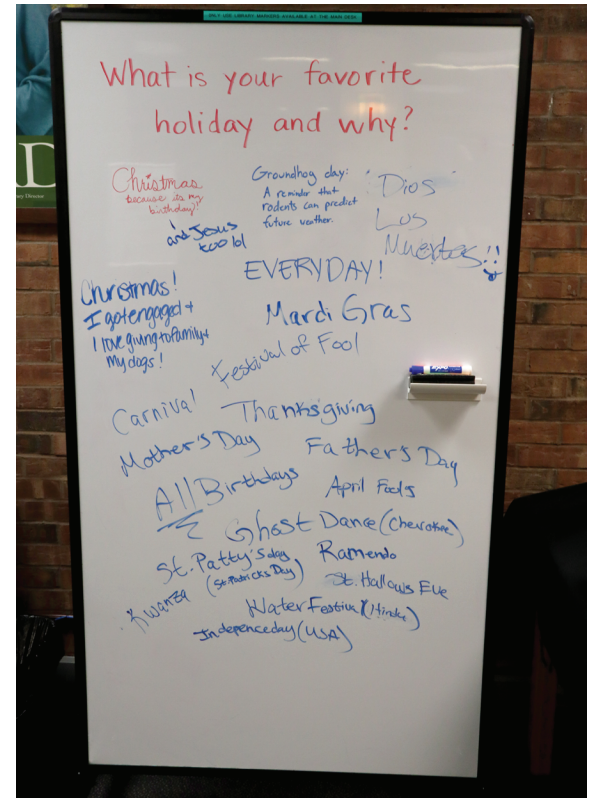 ONLY USE LIBRARY MARKERS AVAILABLE AT THE MAIN DESK
What is your favorite
holiday and why?
Christmas
because its my
birthday!
and Jesus
too lol
Groundhog day:
A reminder that
rodents can predict
future weather.
Dios
Los
Muertos!!
EVERYDAY!
Christmas!
I got engaged +
I love giving to family +
my dogs!
Mardi Gras
Festival of Fool
Carnival
Thanksgiving
Mother's Day
Father's Day
All Birthdays
April Fools
Ghost Dance (Cherokee)
St. Patty's day
(St. Patricks Day)
Ramendo
St. Hallows Eve
Kwanza
Water Festival (Hindu)
Indepenceday (USA)